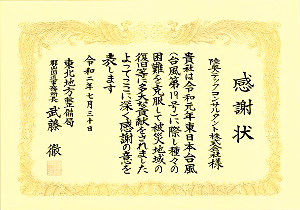 感謝状
陸奥テックコンサルタント株式会社様
貴社は令和元年東日本台風
(台風第19号)に際し種々の
困難を克服して被災地域の
復旧等に多大な貢献をされました
よってここに深く感謝の意を
表します
令和二年七月三十日
東北地方整備局
郡山国道事務所長 武藤 徹